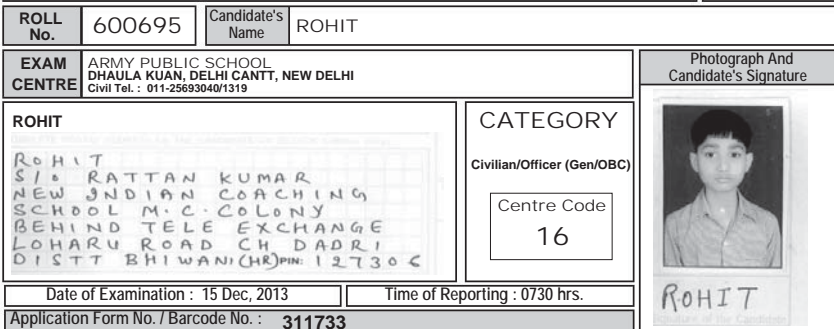 ROLL No.
600695
Candidate's Name
ROHIT
EXAM CENTRE
ARMY PUBLIC SCHOOL
DHAULA KUAN, DELHI CANTT, NEW DELHI
Civil Tel. : 011-25693040/1319
Photograph And
Candidate's Signature
ROHIT
ROHIT
S/o RATTAN KUMAR
NEW INDIAN COACHING
SCHOOL M.C. COLONY
BEHIND TELE EXCHANGE
LOHARU ROAD CH DADRI
DISTT BHIWANI (HR) PIN: 127306
CATEGORY
Civilian/Officer (Gen/OBC)
Centre Code
16
ROHIT
Date of Examination : 15 Dec, 2013
Time of Reporting : 0730 hrs.
Application Form No. / Barcode No. : 311733